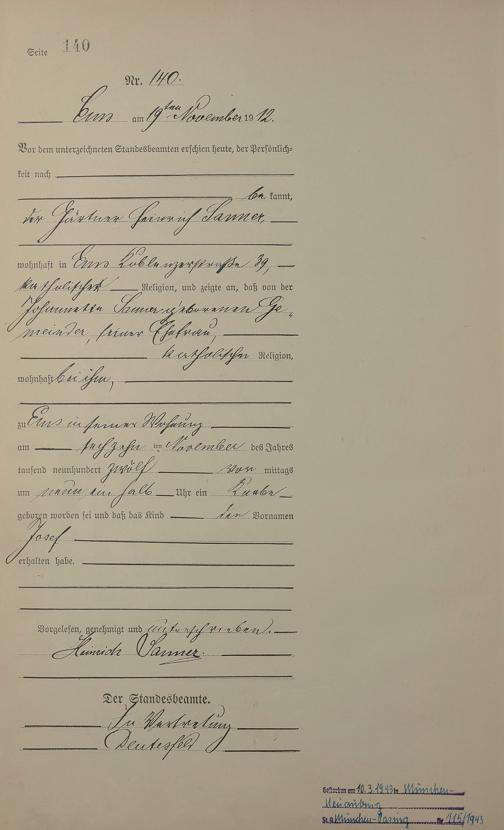 Seite 140
Nr. 140.
Ems am 19ten November 1912.
Vor dem unterzeichneten Standesbeamten erschien heute, der Persönlich=
keit nach
be kannt,
der Gärtner Heinrich Sanner,
wohnhaft in Ems Koblenzerstraße 39,
katholischer Religion, und zeigte an, daß von der
Johannetta Sanner geborenen Ge-
meinder, seiner Ehefrau,
katholischer Religion,
wohnhaft bei ihm,
zu Ems in seiner Wohnung
am sechzehn ten November des Jahres
tausend neunhundert zwölf vor mittags
um neun ein halb Uhr ein Knabe
geboren worden sei und daß das Kind den Vornamen
Josef
erhalten habe.
Vorgelesen, genehmigt und unterschrieben.
Heinrich Sanner.
Der Standesbeamte.
In Vertretung
Gestorben am 10.3.1943 in München-
Neuaubing
St.A. München-Pasing Nr. 115/1943